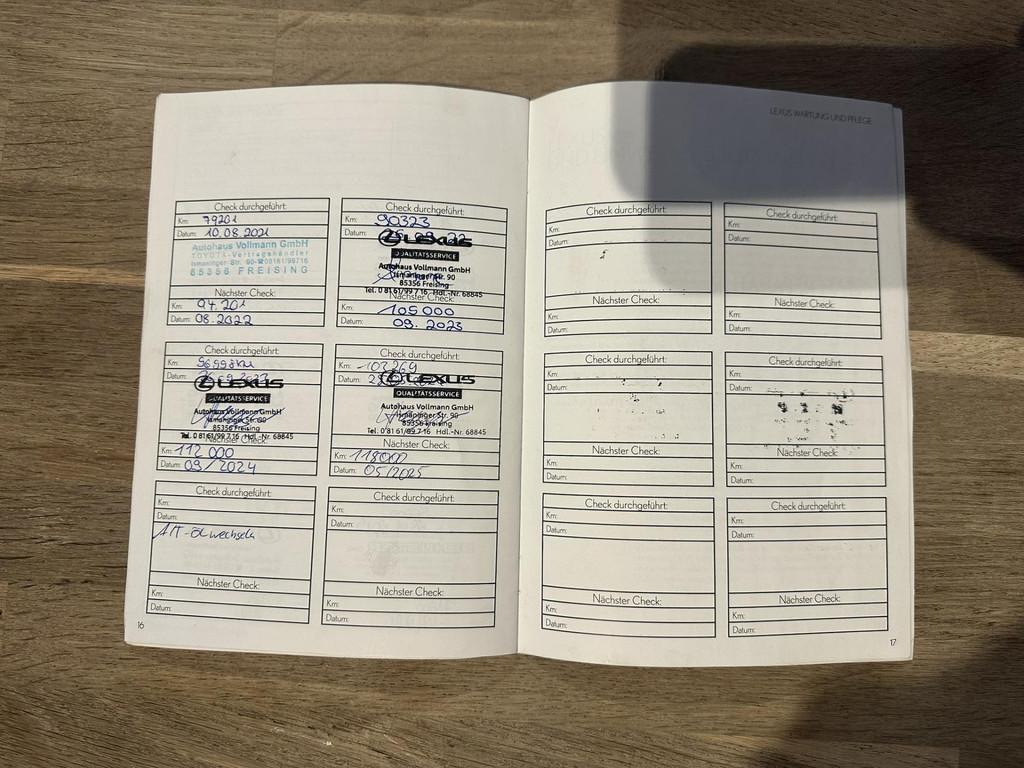 LEXUS WARTUNG UND PFLEGE
Check durchgeführt:
Km: 79201
Datum: 10.08.2021
Autohaus Vollmann GmbH
TOYOTA-Vertragshändler
Ismaninger-Str. 90-☎08161/99716
85356 FREISING
Nächster Check:
Km: 94.201
Datum: 08.2022
Check durchgeführt:
Km: 90323
Datum:
LEXUS
QUALITÄTSSERVICE
Autohaus Vollmann GmbH
Ismaninger Str. 90
85356 Freising
Tel. 0 81 61/99 7 16, Hdl.-Nr. 68845
Nächster Check:
Km: 105 000
Datum: 09. 2023
Check durchgeführt:
Km: 96998km
Datum:
LEXUS
QUALITÄTSSERVICE
Autohaus Vollmann GmbH
Ismaninger Str. 90
85356 Freising
Tel. 0 81 61/99 7 16 Hdl.-Nr. 68845
Nächster Check:
Km: 112 000
Datum: 09/2024
Check durchgeführt:
Km: -103269
Datum:
LEXUS
QUALITÄTSSERVICE
Autohaus Vollmann GmbH
Ismaninger Str. 90
85356 Freising
Tel. 0 81 61/99 7 16 Hdl.-Nr. 68845
Nächster Check:
Km: 118000
Datum: 05/2025
Check durchgeführt:
Km:
Datum:
A/T-Öl wechseln
Nächster Check:
Km:
Datum:
Check durchgeführt:
Km:
Datum:
Nächster Check:
Km:
Datum:
16
Check durchgeführt:
Km:
Datum:
Nächster Check:
Km:
Datum:
Check durchgeführt:
Km:
Datum:
Nächster Check:
Km:
Datum:
Check durchgeführt:
Km:
Datum:
Nächster Check:
Km:
Datum:
Check durchgeführt:
Km:
Datum:
Nächster Check:
Km:
Datum:
Check durchgeführt:
Km:
Datum:
Nächster Check:
Km:
Datum:
Check durchgeführt:
Km:
Datum:
Nächster Check:
Km:
Datum:
17